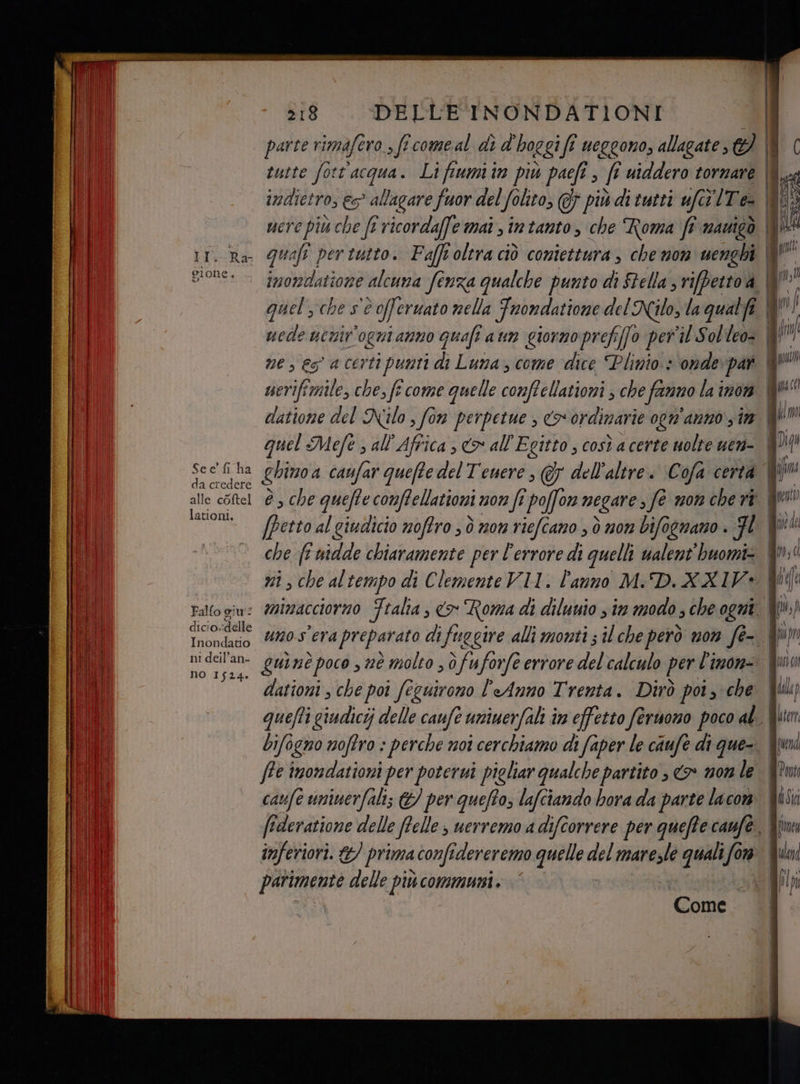 218 DELLE INONDATIONI
parte rimaſero, ſi come al dì d'hoggi ſi ueggono, allagate, &
tutte ſott'acqua. Li fiumi in piu paeſi, ſi uiddero tornare
indietro, & allagare fuor del ſolito, & più di tutti uſcì'l Te-
uere più che ſi ricordaſſe mai, in tanto, che Roma ſi nauigò
II. Ra-
gione.
quaſi per tutto. Faſſi oltra ciò coniettura, che non uenghi
inondatione alcuna ſenza qualche punto di Stella, riſpetto a
quel, che s'è oſſeruato nella Inondatione del Nilo, la qual ſi
uede uenir'ogni anno quaſi a un giorno prefiſſo per'il Solleo-
ne, & a certi punti di Luna, come dice Plinio: onde par
ueriſimile, che, ſi come quelle conſtellationi, che fanno la inon
datione del Nilo, ſon perpetue, & ordinarie ogn'anno, in
quel Meſe, all'Africa, & all'Egitto, così a certe uolte uen-
Se e' ſi ha
da credere
alle cóſtel
lationi.
ghino a cauſar queſte del Teuere, & dell'altre. Coſa certa
è, che queſte conſtellationi non ſi poſſon negare, ſe non che ri
ſpetto al giudicio noſtro, ò non rieſcano, ò non biſognano. Il
che ſi uidde chiaramente per l'errore di quelli ualent'huomi-
ni, che al tempo di Clemente VII. l'anno M.D.XXIV.
Falſo giu-
dicio delle
Inondatio
ni dell'an-
no 1524.
minacciorno Italia, & Roma di diluuio, in modo, che ogni
uno s'era preparato di fuggire alli monti; il che però non ſe-
guì nè poco, nè molto, ò fu forſe errore del calculo per l'inon-
dationi, che poi ſeguirono l'Anno Trenta. Dirò poi, che
queſti giudicij delle cauſe uniuerſali in effetto ſeruono poco al
biſogno noſtro: perche noi cerchiamo di ſaper le cauſe di que-
ſte inondationi per poterui pigliar qualche partito, & non le
cauſe uniuerſali; & per queſto, laſciando hora da parte la con
ſideratione delle ſtelle, uerremo a diſcorrere per queſte cauſe
inferiori. & prima conſidereremo quelle del mare, le quali ſon
parimente delle più communi.
Come